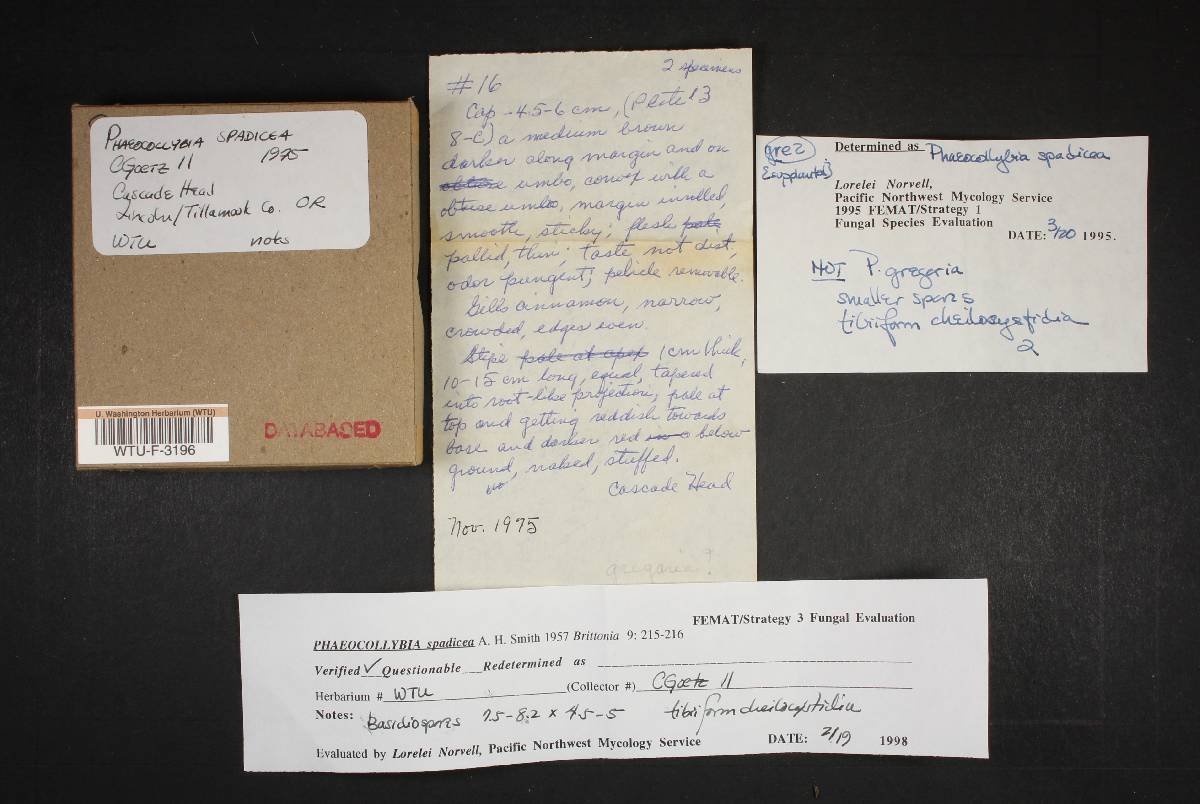 PHAEOCOLLYBIA SPADICEA
CGOETZ 11 1975
Cascade Head
Lincoln/Tillamook Co. OR
WTU notes
U. Washington Herbarium (WTU)
WTU-F-3196
DATABASED
2 specimens
#16
Cap - 4.5-6 cm, (Plate 13
8-C) a medium brown
darker along margin and on
obtuse umbo, convex with a
obtuse umbo, margin inrolled,
smooth, sticky; flesh pale
pallid, thin; taste not dist;
odor pungent; pelicle removable.
Gills cinnamon, narrow,
crowded, edges even.
Stipe pale at apex 1cm thick,
10-15 cm long, equal, tapered
into root-like projection; pale at
top and getting reddish towards
base and darker red below
ground, naked, stuffed.
Cascade Head
Nov. 1975
gregaria?
greg
Determined as Phaeocollybia spadicea
Lorelei Norvell,
Pacific Northwest Mycology Service
1995 FEMAT/Strategy 1
Fungal Species Evaluation
DATE: 3/20 1995.
NOT P. gregaria
smaller spores
tibiiform cheilocystidia
2
FEMAT/Strategy 3 Fungal Evaluation
PHAEOCOLLYBIA spadicea A. H. Smith 1957 Brittonia 9: 215-216
Verified ✓ Questionable ___ Redetermined as
Herbarium # WTU (Collector #) CGoetz 11
Notes: Basidiospores 7.5-8.2 x 4.5-5 tibiiform cheilocystidia
Evaluated by Lorelei Norvell, Pacific Northwest Mycology Service DATE: 2/19 1998